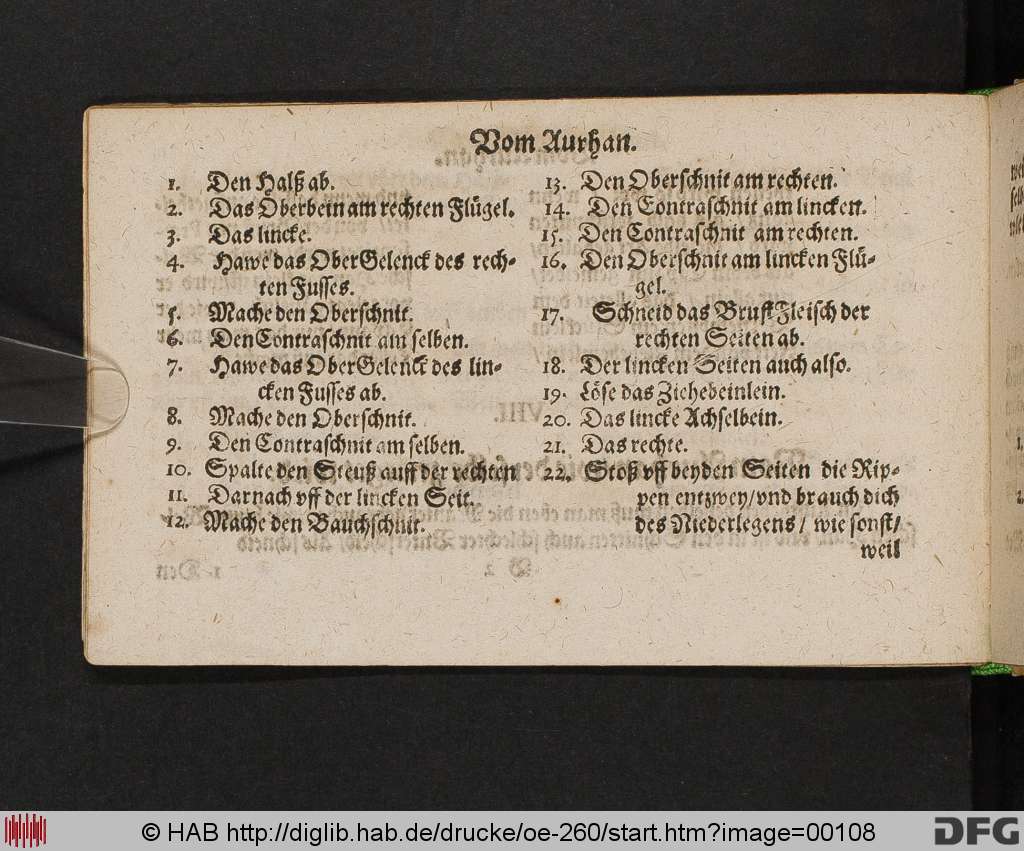 Vom Aurhan.
1. Den Halß ab.
2. Das Oberbein am rechten Flügel.
3. Das lincke.
4. Hawe das OberGelenck des rech-
ten Fusses.
5. Mache den Oberschnit.
6. Den Contraschnit am selben.
7. Hawe das OberGelenck des lin-
cken Fusses ab.
8. Mache den Oberschnit.
9. Den Contraschnit am selben.
10. Spalte den Steuß auff der rechten
11. Darnach vff der lincken Seit.
12. Mache den Bauchschnit.
13. Den Oberschnit am rechten.
14. Den Contraschnit am lincken.
15. Den Contraschnit am rechten.
16. Den Oberschnit am lincken Flü-
gel.
17. Schneid das BrustFleisch der
rechten Seiten ab.
18. Der lincken Seiten auch also.
19. Löse das Ziehebeinlein.
20. Das lincke Achselbein.
21. Das rechte.
22. Stoß vff beyden Seiten die Rip-
pen entzwey/vnd brauch dich
des Niederlegens/ wie sonst/
weil
© HAB http://diglib.hab.de/drucke/oe-260/start.htm?image=00108
DFG